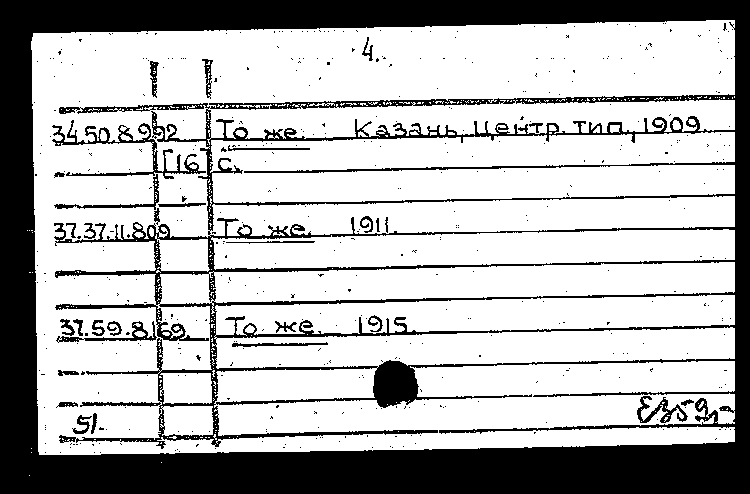 4.
34.50.8.992 То же. Казань, Центр. тип., 1909.
[16] с.
37.37.11.809 То же. 1911.
37.59.8.169. То же. 1915.
51.